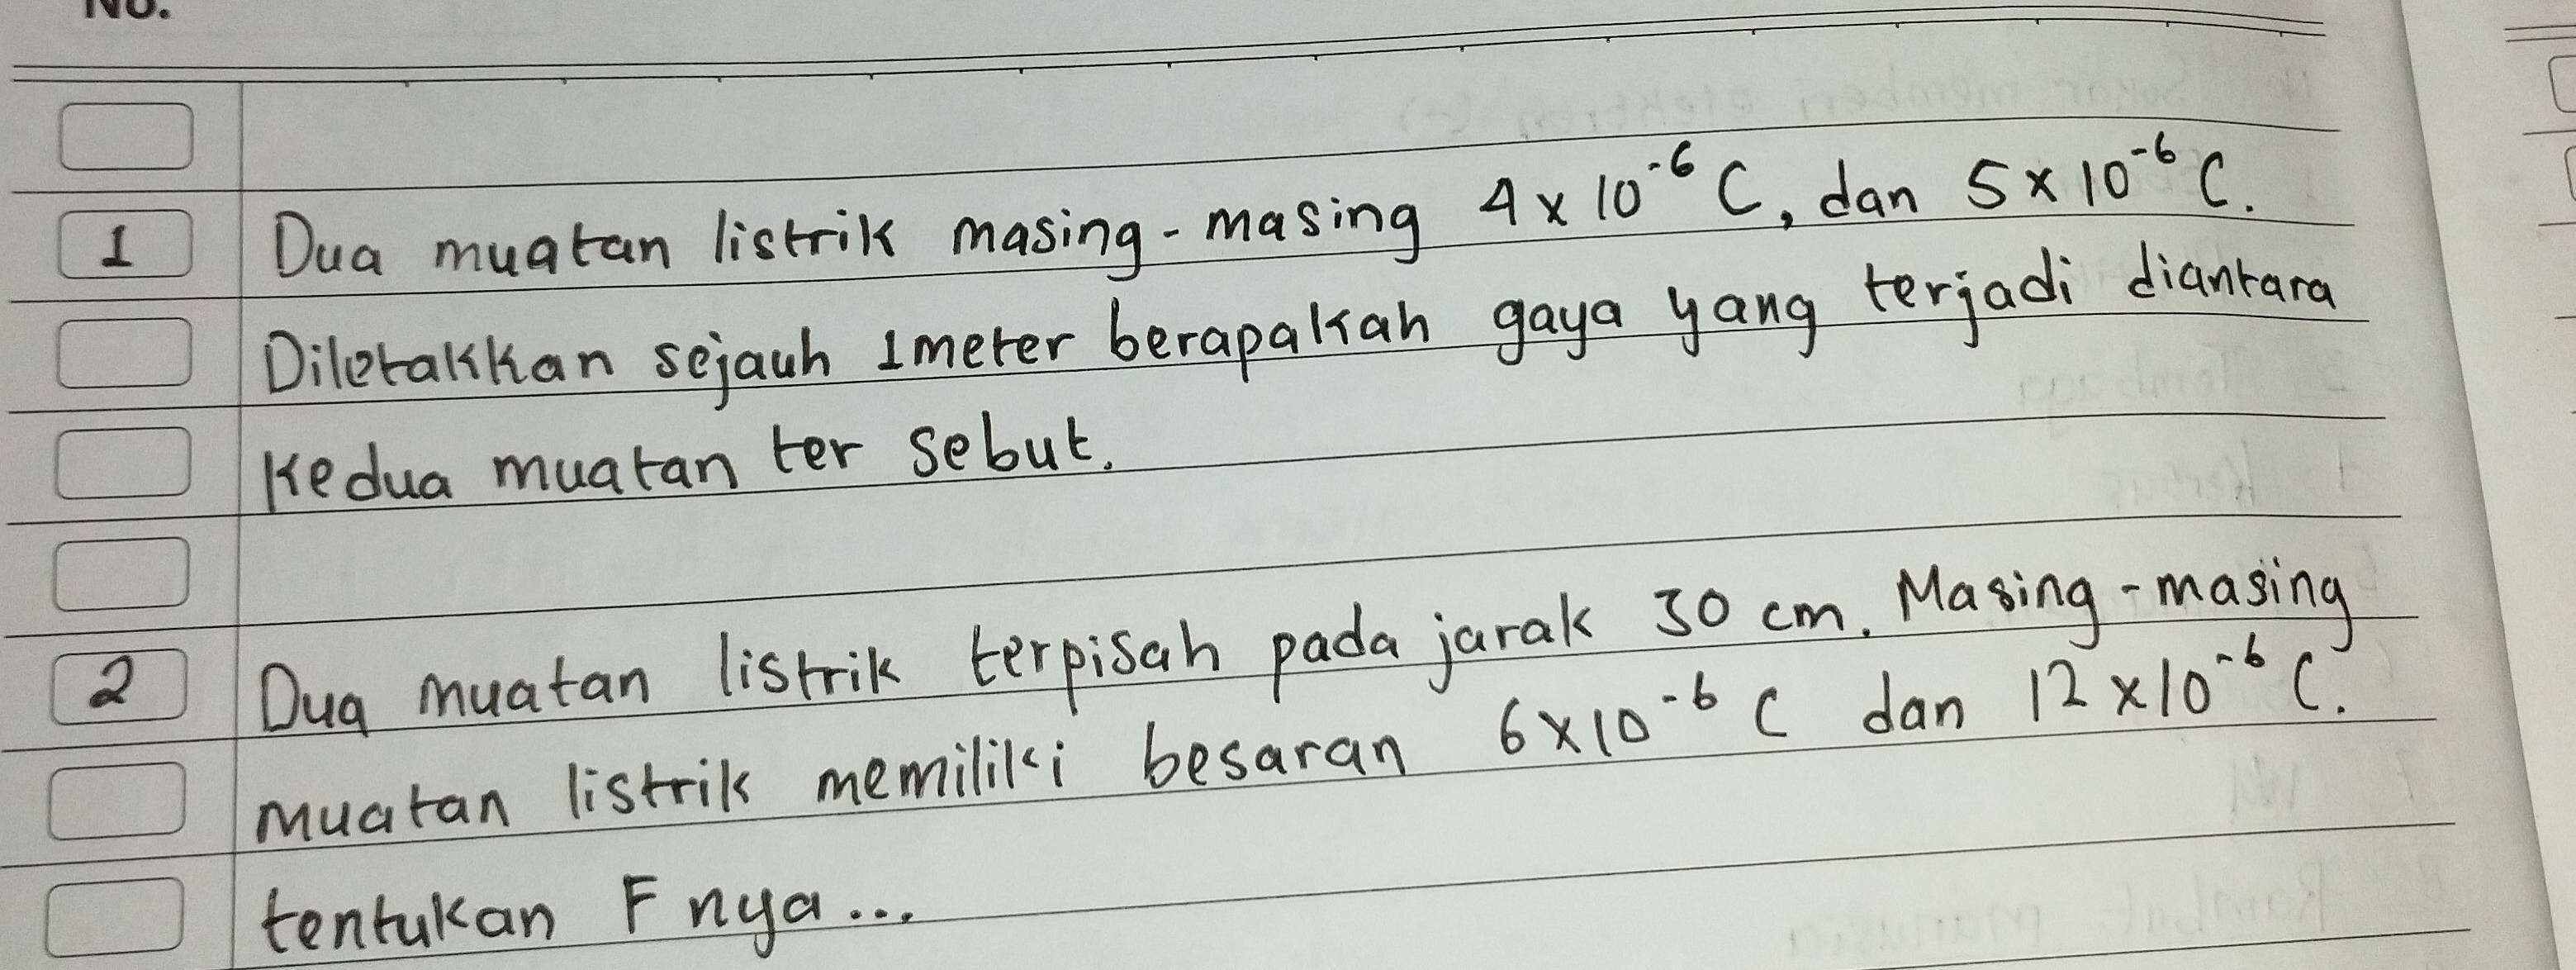 No.
1 Dua muatan listrik masing-masing 4 x 10⁻⁶ C, dan 5 x 10⁻⁶ C.
Diletakkan sejauh 1 meter berapakah gaya yang terjadi diantara
Kedua muatan ter sebut.
2 Dua muatan listrik terpisah pada jarak 30 cm. Masing-masing
muatan listrik memiliki besaran 6 x 10⁻⁶ C dan 12 x 10⁻⁶ C.
tentukan F nya...